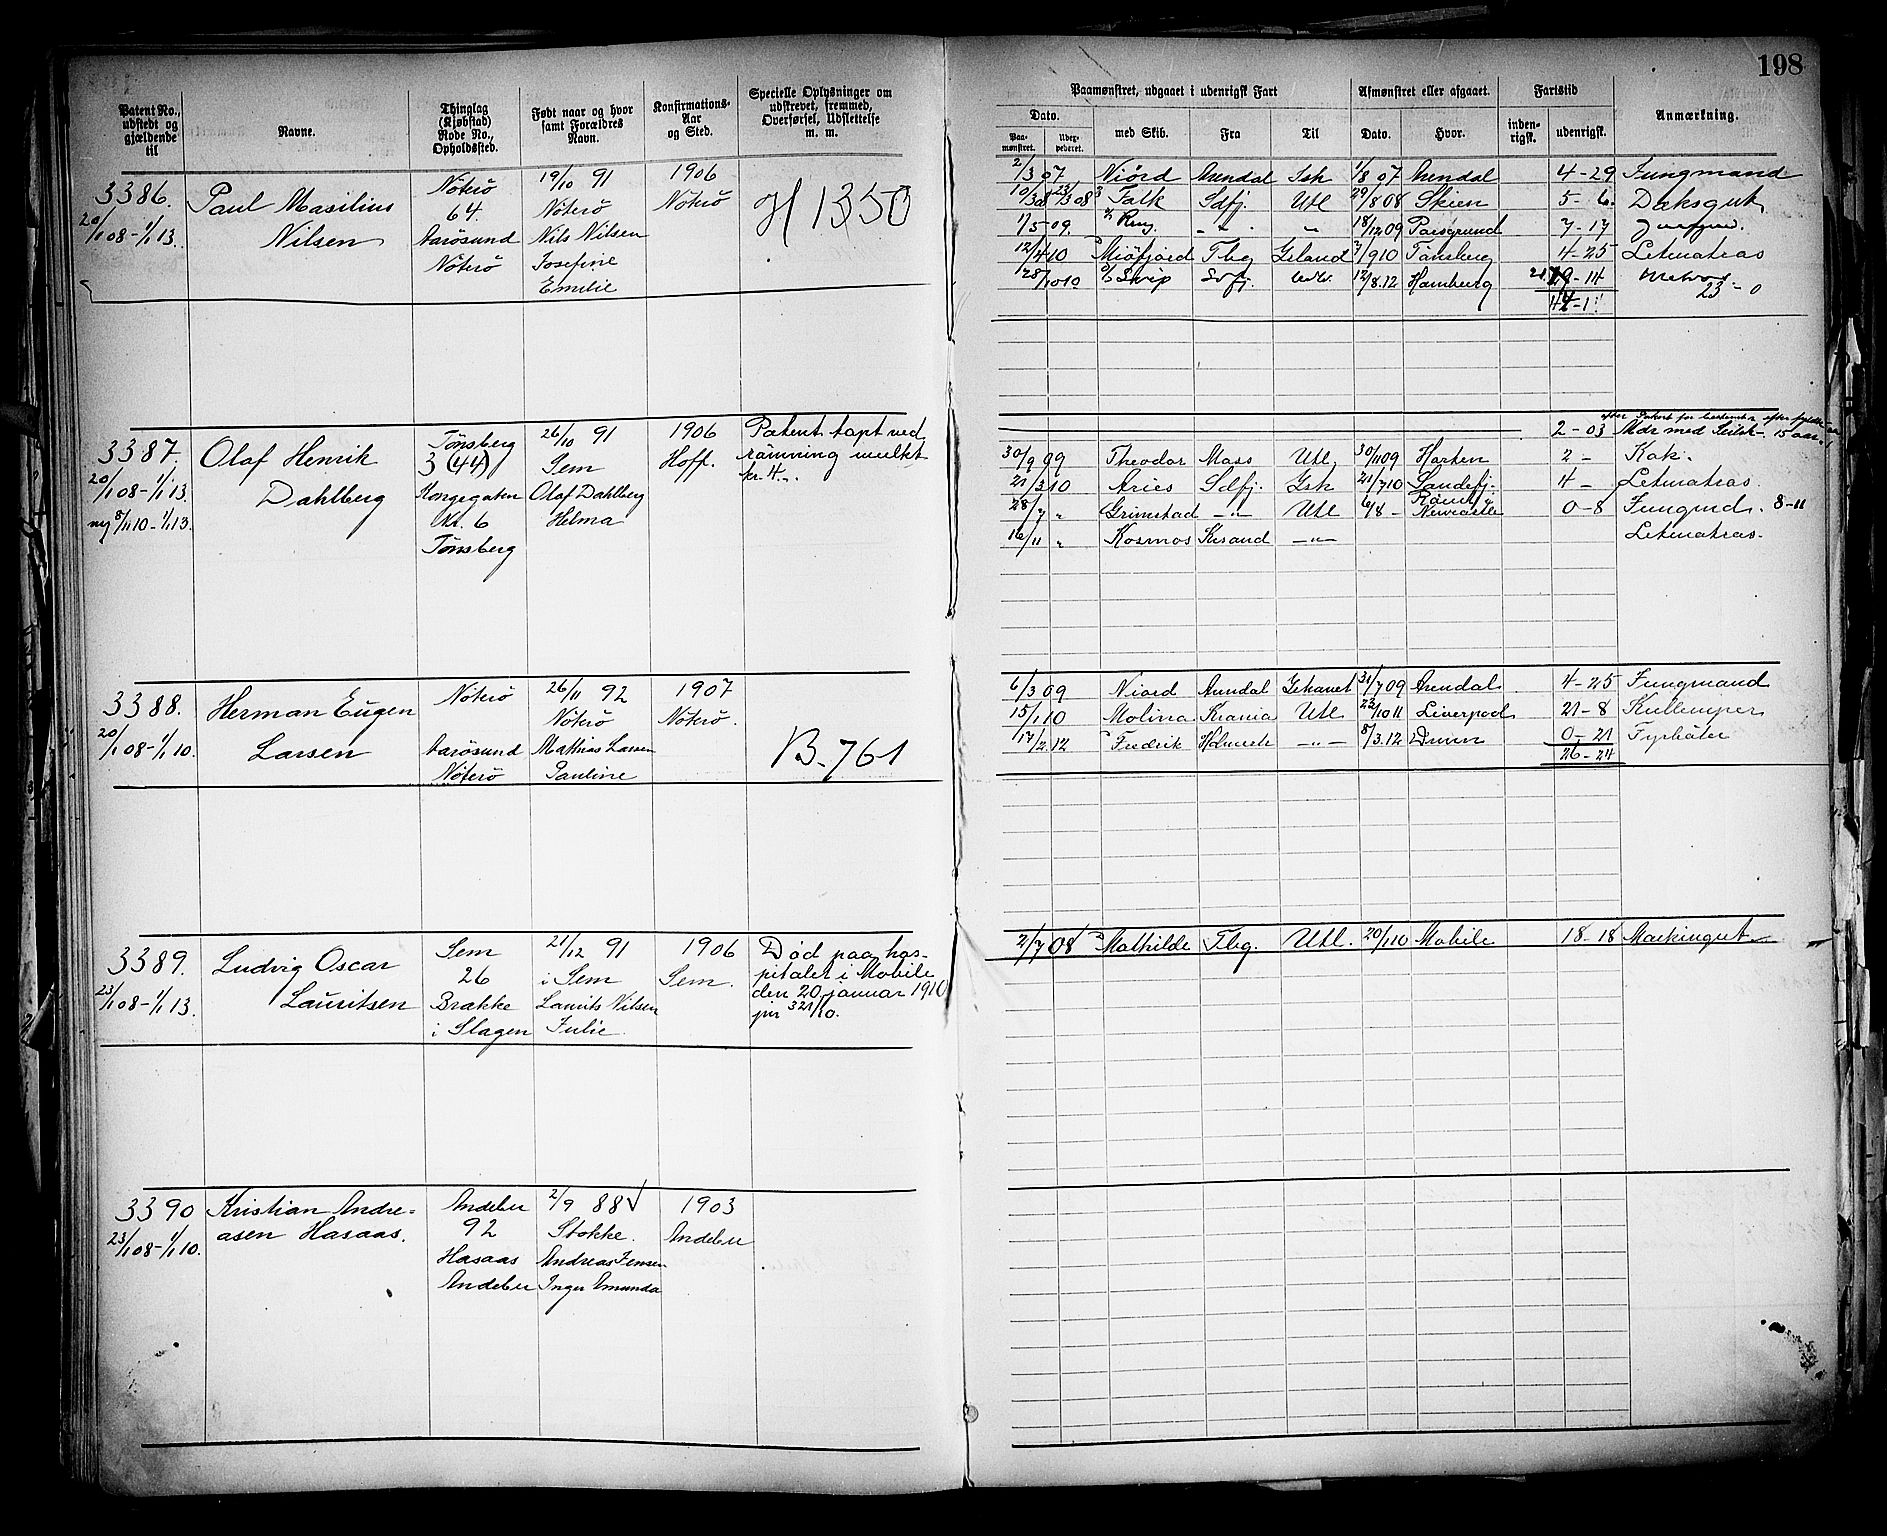 198
Patent No., udstedt og gjældende til
Navne.
Thinglag (Kjøbstad) Rode No., Opholdssted.
Født naar og hvor samt Forældres Navn.
Konfirmations-Aar og Sted.
Specielle Oplysninger om udskrevet, fremmed, Overførsel, Udslettelse m. m.
Paamønstret, udgaaet i udenrigsk Fart
Afmønstret eller afgaaet.
Fartstid
Anmærkning.
Dato.
Paa-mønstret.
med Skib.
Fra
Til
Dato.
Hvor.
inden-rigsk.
udenrigsk.
3386.
20/1 08 - 1/1 13.
Paul Masilius
Nilsen
Nøterø
64.
Nøterø
19/10 91
Nøterø
Nils Nilsen
Josefine
Emilie
1906
Nøterø
H 1350
2/3 07 Niord Arendal Isk 1/8 07 Arendal 4-29 Jungmand
Falk Sdfj. Utl 29/8 08 Skien 5-6. Dæksgut
1/5 09. 18/12 09 Porsgrund 7-17
12/4 10 Miöfjord Tbg Island 7/9 10 Tønsberg 4-25 Letmatros
12/8.12 Hamburg
3387.
20/1 08 - 1/1 13.
ny 8/11 10 - 1/1 13.
Olaf Henrik
Dahlberg
Tønsberg
3 (44)
Kongegaten
No. 6
Tønsberg
26/10 91
Sem
Olaf Dahlberg
Helma
1906
Hoff.
Patent tapt ved
rømning mulkt
kr. 4.-.
2-03 Mdr med Seilsk- 15 aar.
30/9 09 Theodor Moss Utl, 30/11 09 Horten 2 - Kok.
21/3 10 Aries Sdfj. Isk 21/7 10 Sandefj. 4 - Letmatros.
28/7 " Grimstad -"- Utl 6/8 - Rømt i Newcastle 0-8 Jungmd. 8-11
16/11 " Kosmos Krsand -"- Letmatros.
3388.
20/1 08 - 1/1 10.
Herman Eugen
Larsen
Nøterø
Nøterø
26/11 92
Nøterø
Mathias Larsen
Pauline
1907
Nøterø.
B. 761
6/3 09 Niord Arendal Ishavet 31/7 09 Arendal 4-25 Jungmand
15/1 10 Molina Krania Utl 23/10 11 Liverpool 21-8 Kullemper
17/2 12 Fredrik -"- 8/3.12 0-21 Fyrbøter
26-24
3389.
23/1 08 - 1/1 13.
Ludvig Oscar
Lauritsen
Sem
26
Brakke
i Slagen
21/12 91
i Sem
Laurits Nilsen
Julie
1906
Sem.
Død paa hos-
pitalet i Mobile
den 20 januar 1910
jnr 321/10.
2/7 08 Mathilde Tbg. Utl. 20/1 10 Mobile 18-18 Maskingut
3390
23/1 08 - 1/1 10.
Kristian Andre-
asen Hasaas.
Andebu
92
Hasaas
Andebu
2/9 88 √
Stokke.
Andreas Jensen
Inger Amunda
1903
Andebu